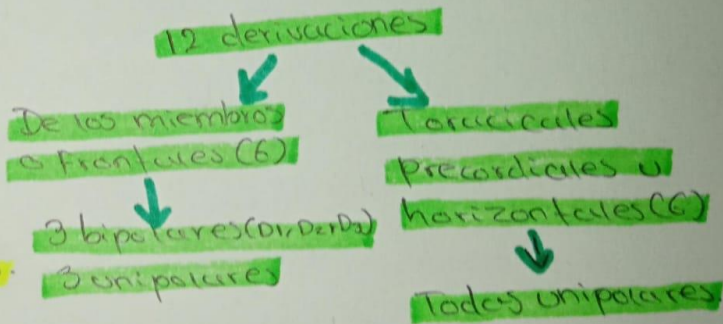 12 derivaciones
De los miembros
o Frontales (6)
3 bipolares (D1, D2, D3)
3 unipolares
Toracicales
precordiales u
horizontales (6)
Todas unipolares